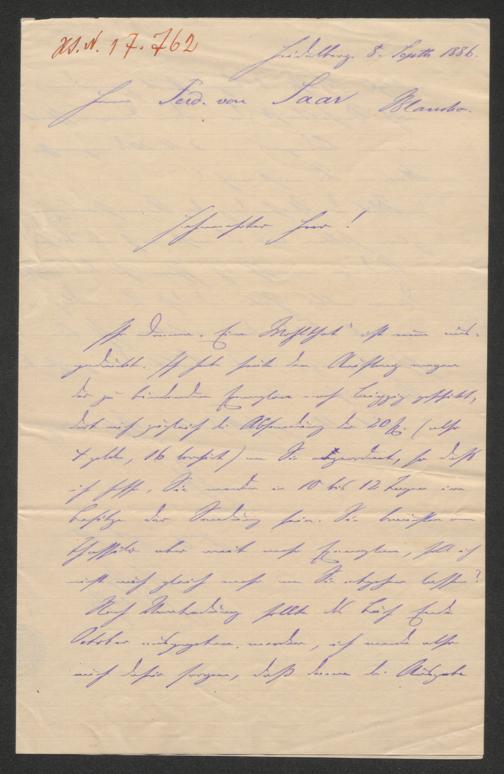 H.I.N. 17.762
Heidelberg. 8. Septb 1886.
Herrn Ferd. von Saar Blansko.
Hochverehrter Herr!
"Eine Wohlthat" ist nun aus-
gedruckt. Ich habe heute den Auftrag wegen
der zu bindenden Exemplare nach Leipzig geschickt,
dort auch zugleich die Absendung der 20 Ex. (also
4 gebdn, 16 brosch) an Sie angeordnet, so daß
ich hoffe, Sie werden in 10 bis 12 Tagen im
Besitze der Sendung sein. Sie brauchen
aber weit mehr Exemplare, soll ich
nicht noch gleich mehr an Sie abgehen lassen?
Nach Verabredung sollte das Buch Ende
October ausgegeben werden, ich werde also
auch dafür sorgen, daß denn die Ausgabe